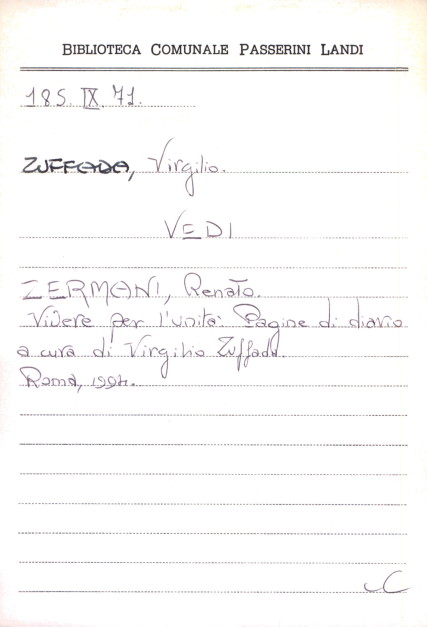 BIBLIOTECA COMUNALE PASSERINI LANDI
185. IX. 71.
ZUFFADA, Virgilio.
VEDI
ZERMANI, Renato.
Vivere per l'unità: Pagine di diario
a cura di Virgilio Zuffada.
Roma, 1994.